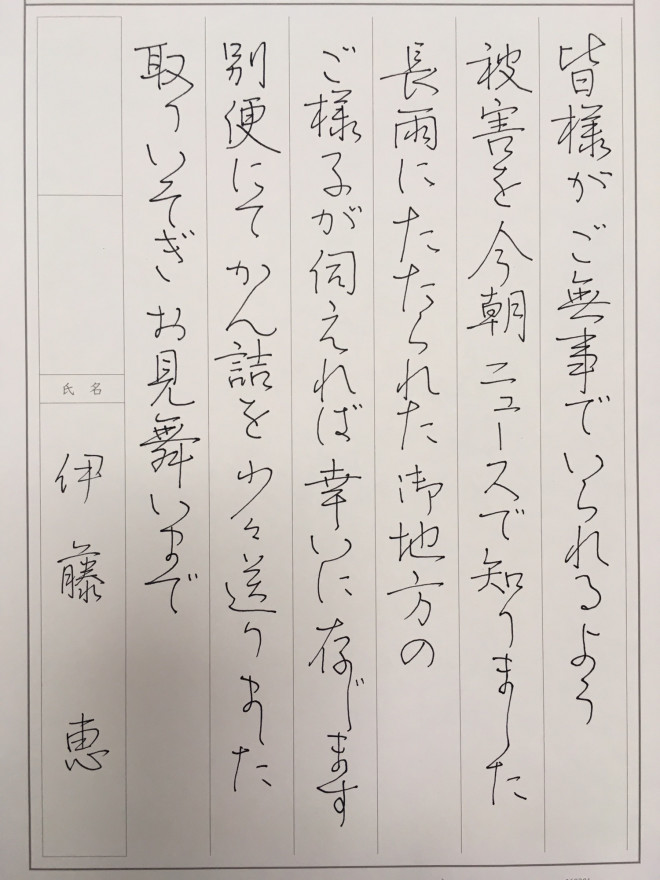 皆様がご無事でいられるよう
被害を今朝ニュースで知りました
長雨にたたられた御地方の
ご様子が伺えれば幸いに存じます
別便にてかん詰を少々送りました
取りいそぎお見舞いまで
氏名
伊藤恵